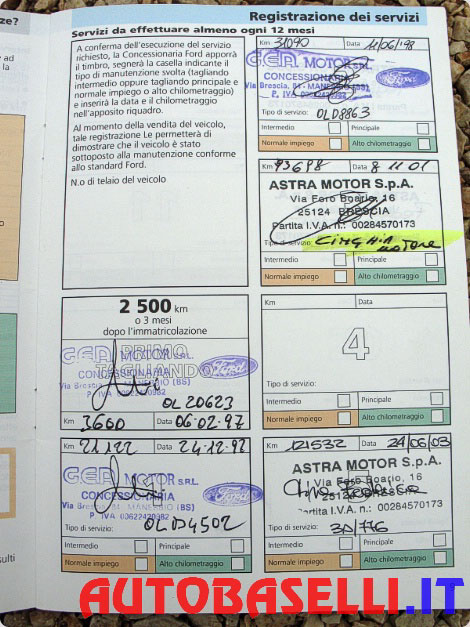 Registrazione dei servizi
ze?
Servizi da effettuare almeno ogni 12 mesi
A conferma dell'esecuzione del servizio
richiesto, la Concessionaria Ford apporrà
il timbro, segnerà la casella indicante il
tipo di manutenzione svolta (tagliando
intermedio oppure tagliando principale e
normale impiego o alto chilometraggio)
e inserirà la data e il chilometraggio
nell'apposito riquadro.
Al momento della vendita del veicolo,
tale registrazione Le permetterà di
dimostrare che il veicolo è stato
sottoposto alla manutenzione conforme
allo standard Ford.
N.o di telaio del veicolo
Km 31090 Data 11/06/98
GEA MOTOR SRL
CONCESSIONARIA
Via Brescia, 81 - MANERBIO (BS)
Ford
Tipo di servizio: OLD8863
Intermedio Principale
Normale impiego Alto chilometraggio
Km 93698 Data 8 11 01
ASTRA MOTOR S.p.A.
Via Foro Boario, 16
25124 BRESCIA
Partita I.V.A. n.: 00284570173
Tipo di servizio: CINGHIA
MOTORE
Intermedio Principale
Normale impiego Alto chilometraggio
2 500 km
o 3 mesi
dopo l'immatricolazione
PRIMO
TAGLIANDO
GEA MOTOR SRL
CONCESSIONARIA
Via Brescia MANERBIO (BS)
Ford
OL 20623
Km 3600 Data 06-02-97
Km Data
4
Tipo di servizio:
Intermedio Principale
Normale impiego Alto chilometraggio
Km 21122 Data 24-12-97
GEA MOTOR SRL
CONCESSIONARIA
Ford
Tipo di servizio: OLID4502
Intermedio Principale
Normale impiego Alto chilometraggio
Km 121532 Data 24/06/03
ASTRA MOTOR S.p.A.
Via Foro Boario, 16
25124 BRESCIA
Partita I.V.A. n.: 00284570173
Tipo di servizio: 30/776
Intermedio Principale
Normale impiego Alto chilometraggio
sulti
AUTOBASELLI.IT